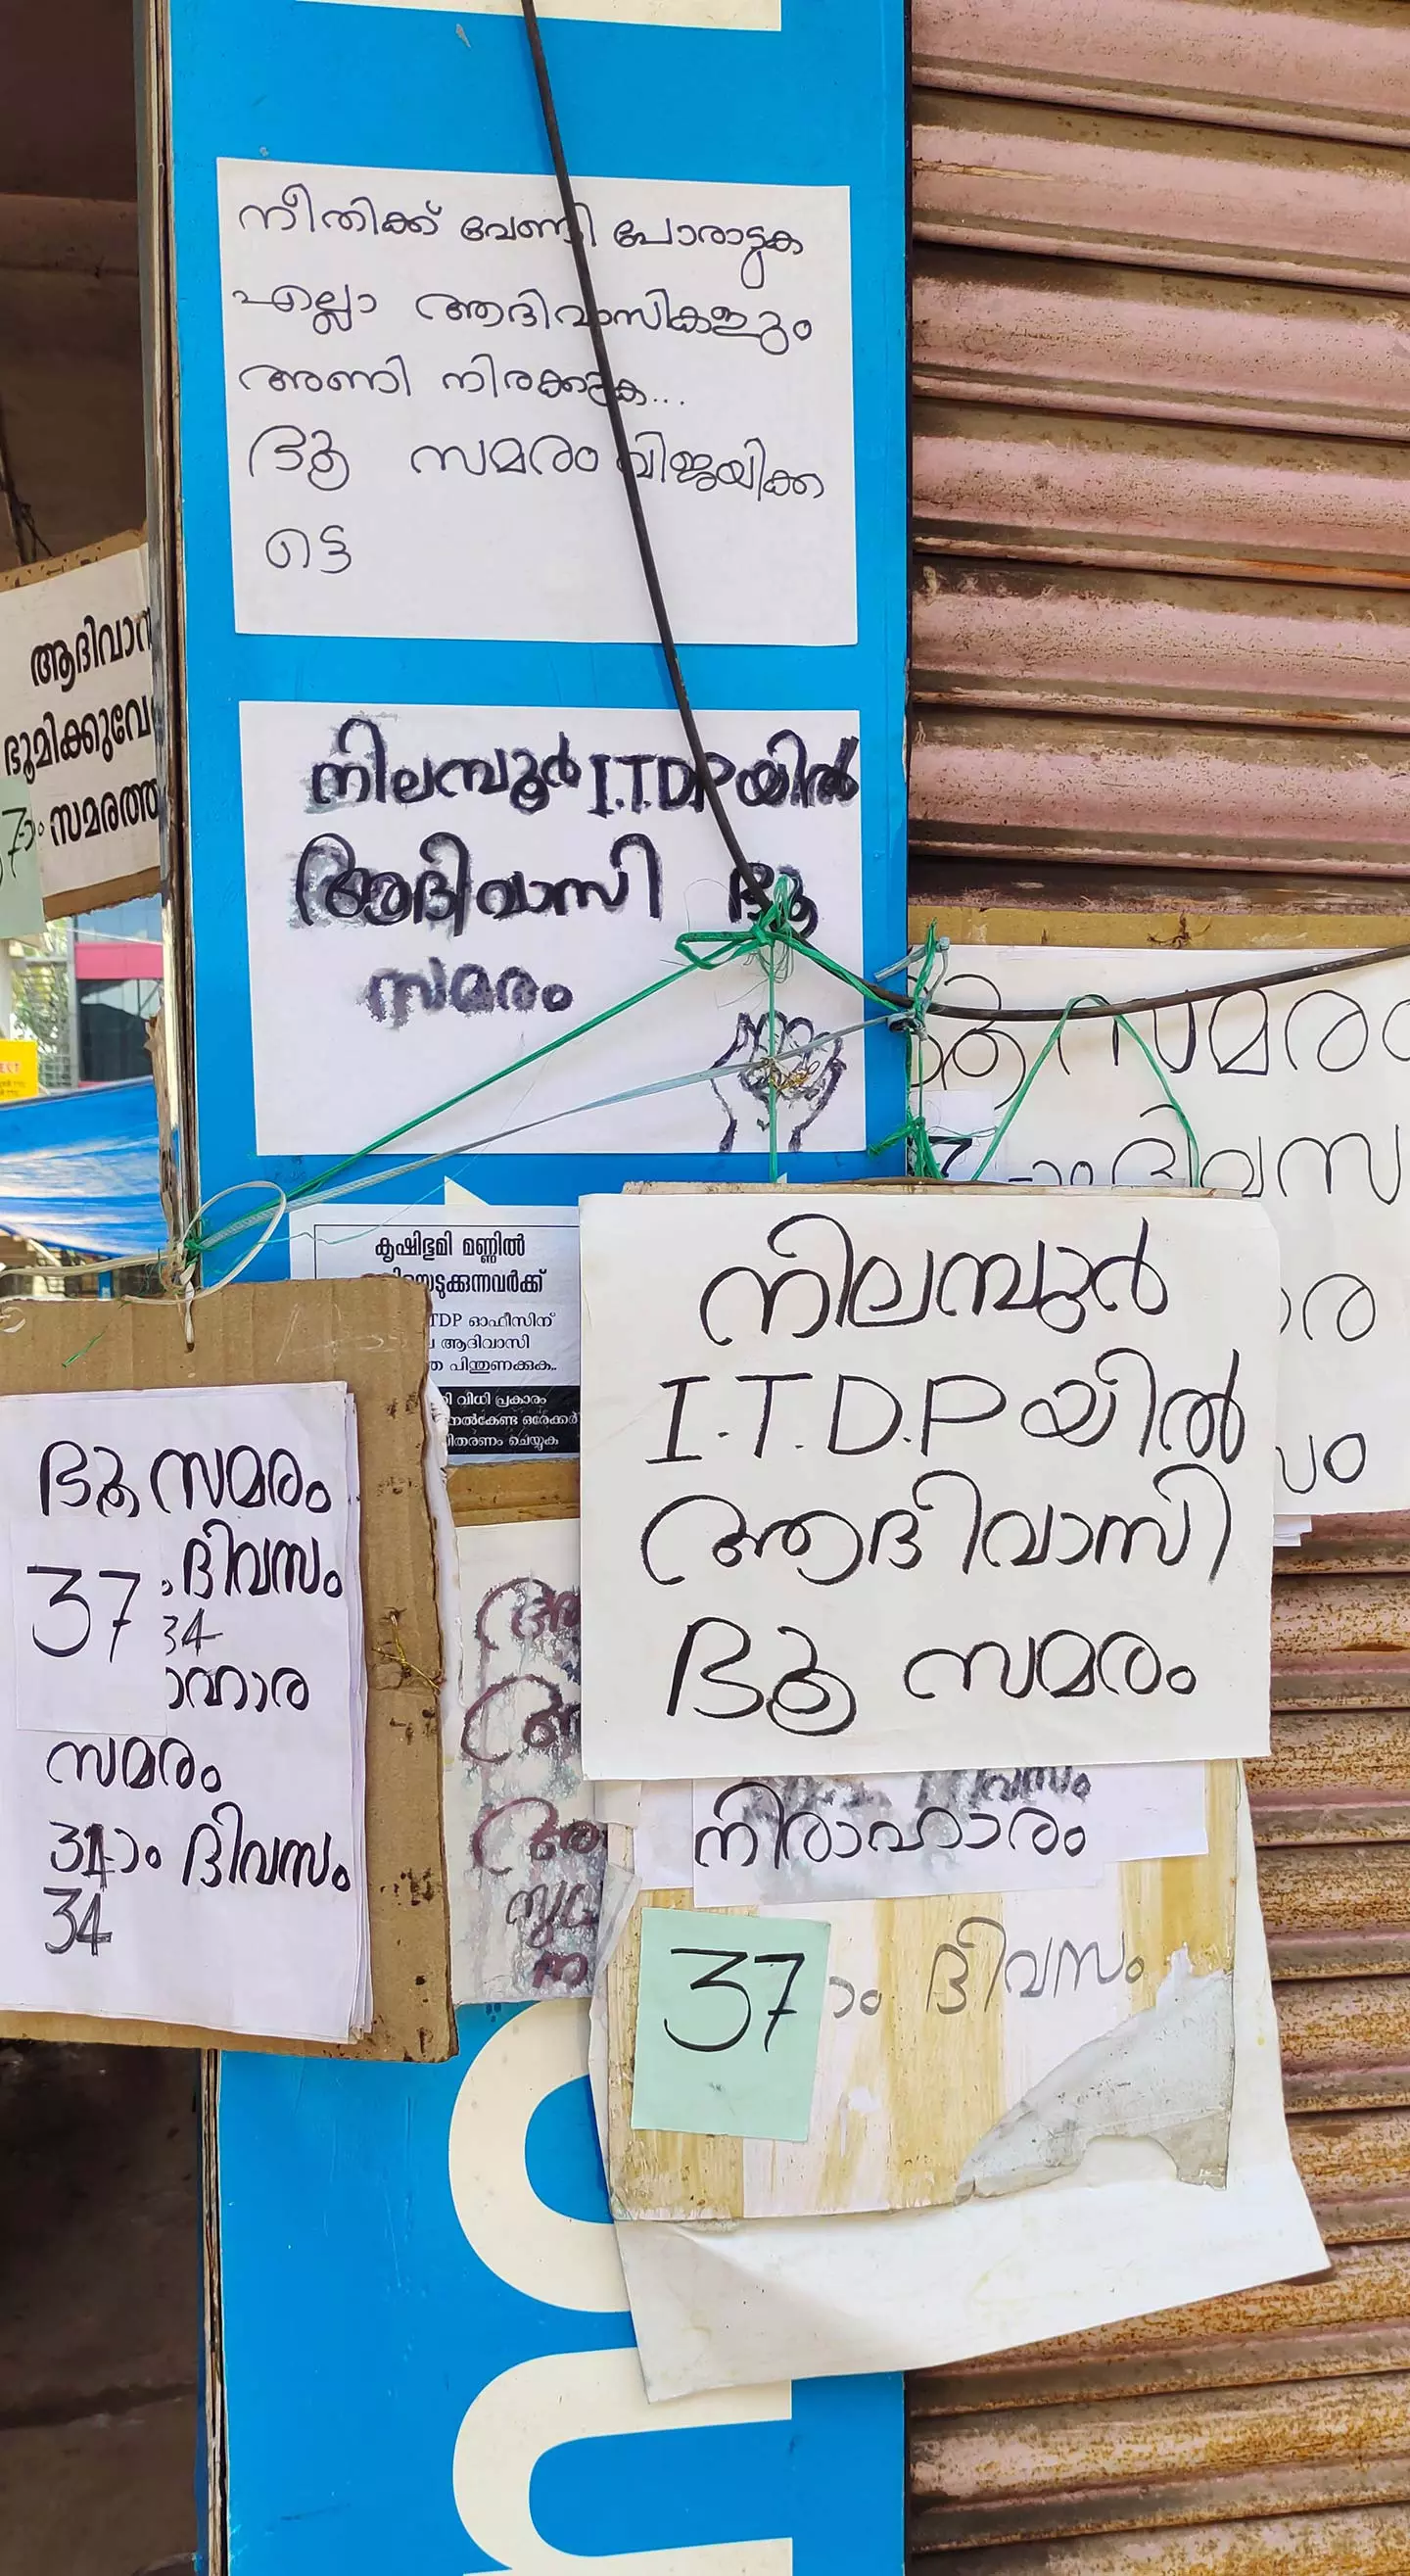 നീതിക്ക് വേണ്ടി പോരാടുക
എല്ലാ ആദിവാസികളും
അണി നിരക്കുക...
ഭൂ സമരം വിജയിക്ക
ട്ടെ
ഭൂമിക്കുവേ
സമരത്ത
നിലമ്പൂർ I.T.D.P യിൽ
ആദിവാസി ഭൂ
സമരം
സമരം
7 ാം ദിവസ
കൃഷിഭൂമി മണ്ണിൽ
TDP ഓഫീസിന്
ആദിവാസി
പിന്തുണക്കുക..
വിധി പ്രകാരം
നൽകേണ്ട ഒരേക്കർ
വിതരണം ചെയ്യുക
നിലമ്പൂർ
I.T.D.P യിൽ
ആദിവാസി
ഭൂ സമരം
നിരാഹാരം
37 ാം ദിവസം
ഭൂ സമരം
37 ദിവസം
34
ാഹാര
സമരം
34ാം ദിവസം
34